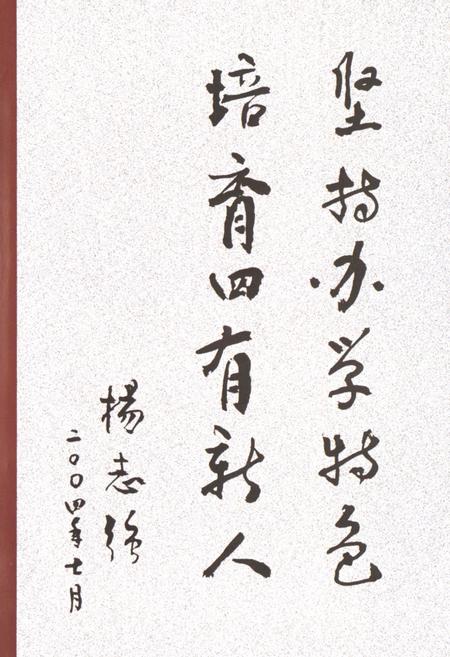 坚持办学特色
培育四有新人
楊志強
二〇〇四年七月